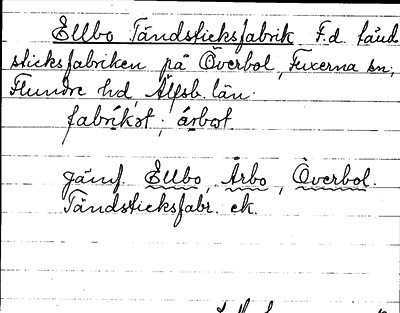 Ellbo Tändsticksfabrik F.d. tänd
sticksfabriken på Överbol, Fuxerna sn;
Flundre hd, Älfsb. län.
fabríkət; árbət.
Jämf. Ellbo, Årbo, Överbol.
Tändsticksfabr. ek.